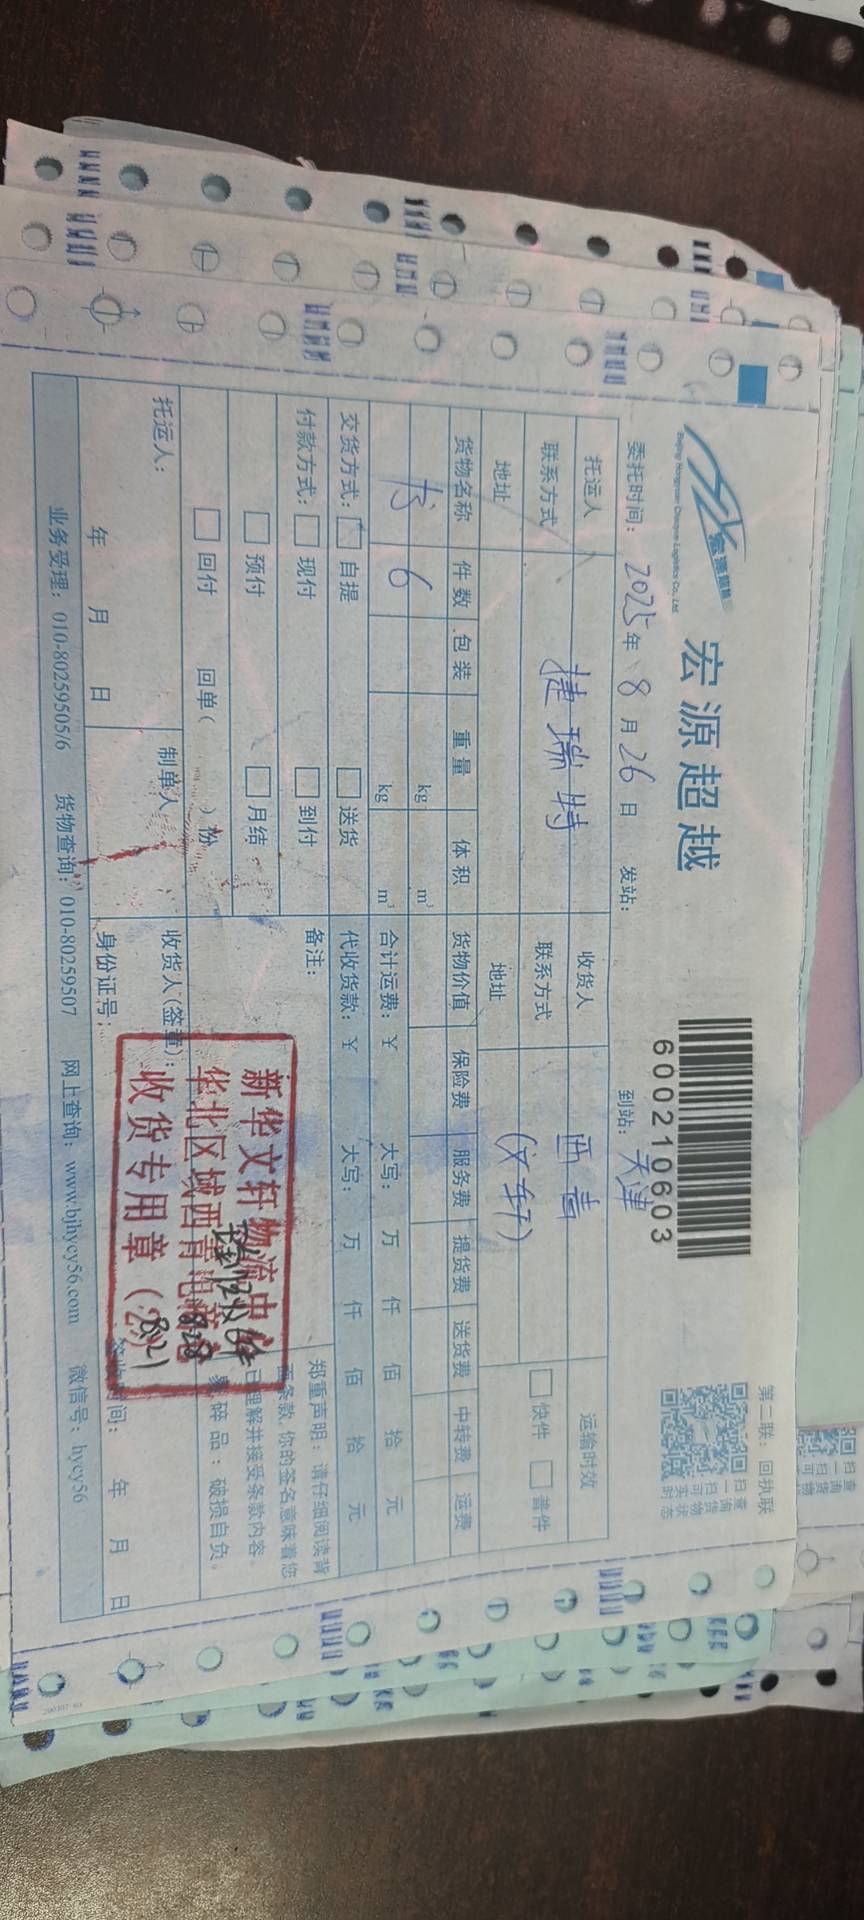 第二联：回执联
宏源超越
Beijing Hongyuan Chaoyue Logistics Co., Ltd.
宏源超越
600210603
扫一扫 查询货物实时状态
委托时间：2025年8月26日 发站： 到站：天津
托运人 收货人 运输时效
联系方式 捷瑞特 联系方式 西青 快件 普件
地址 地址 (文轩)
货物名称 件数 包装 重量 体积 货物价值 保险费 服务费 提货费 送货费 中转费 运费
kg m³
书 6 kg m³ 合计运费：¥ 大写： 万 仟 佰 拾 元
交货方式： 自提 送货 代收货款：¥ 大写： 万 仟 佰 拾 元
付款方式： 现付 到付 备注：
预付 月结
回付 回单( )份
郑重声明：请仔细阅读背
面条款，你的签名意味着您
已理解并接受条款内容。
易碎品：破损自负。
托运人： 制单人 收货人(签章)：
年 月 日 身份证号： 签收时间： 年 月 日
新华文轩物流中心
华北区域西青电商
收货专用章
828
业务受理：010-80259505/6 货物查询：010-80259507 网上查询：www.bjhycy56.com 微信号：hycy56